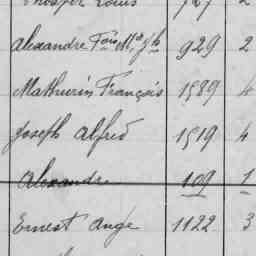 Prosper Louis 727 2
Alexandre Fois Mie Jh 929 2
Mathurin François 1589 4
Joseph Alfred 1519 4
Alexandre 109 1
Ernest Ange 1122 3